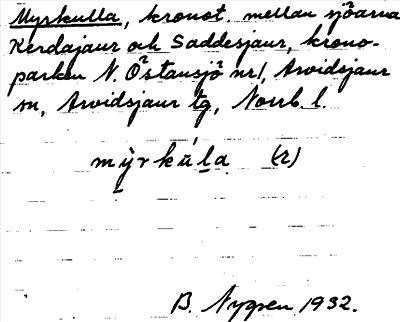 Myrkulla, kronot. mellan sjöarna
Kerdajaur och Saddesjaur, krono-
parken N. Östansjö nr 1, Arvidsjaur
sn, Arvidsjaur tg, Norrb. l.
(r)
B. Nygren 1932.